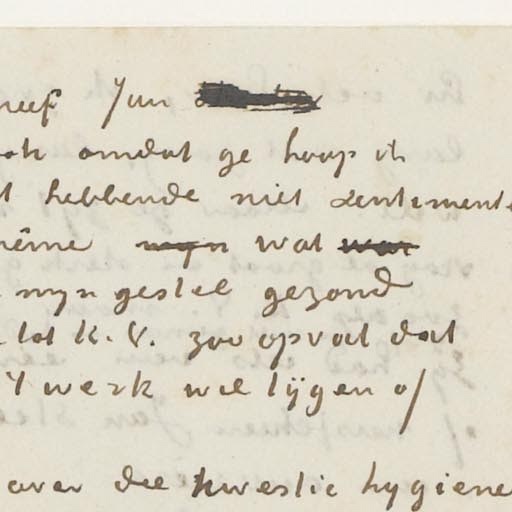 neef Jan
ook omdat ge hoop ik
t hebbende niet sentimente
même mijn wat war
mijn gestel gezond
tot K.V. zoo opvat dat
't werk wil lijgen of
over die kwestie hygiene